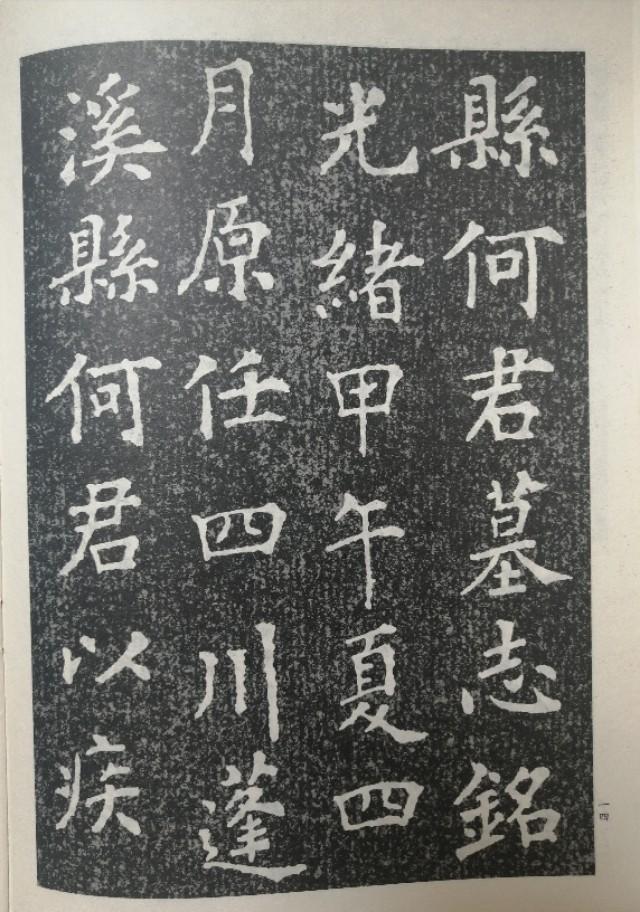 縣何君墓志銘
光緒甲午夏四
月原任四川蓬
溪縣何君以疾
一四